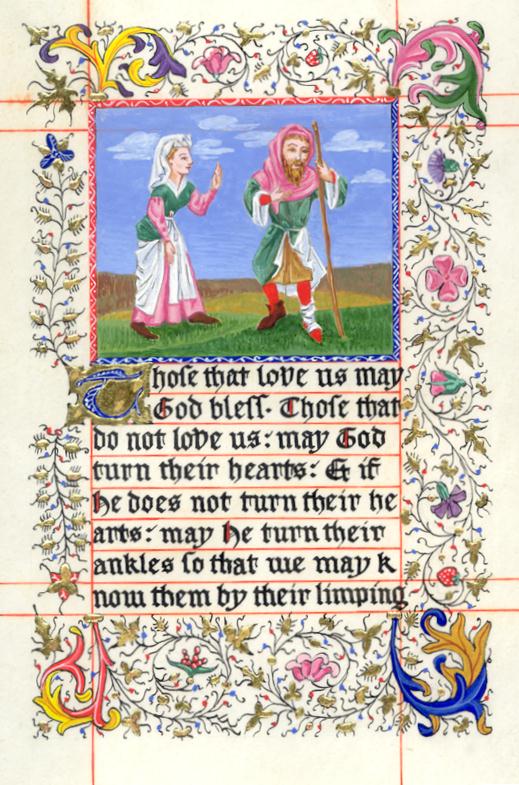 Thoſe that love us may
God bleſſ· Thoſe that
do not love us: may God
turn their hearts: & if
he does not turn their he
arts: may he turn their
ankles ſo that we may k
now them by their limping